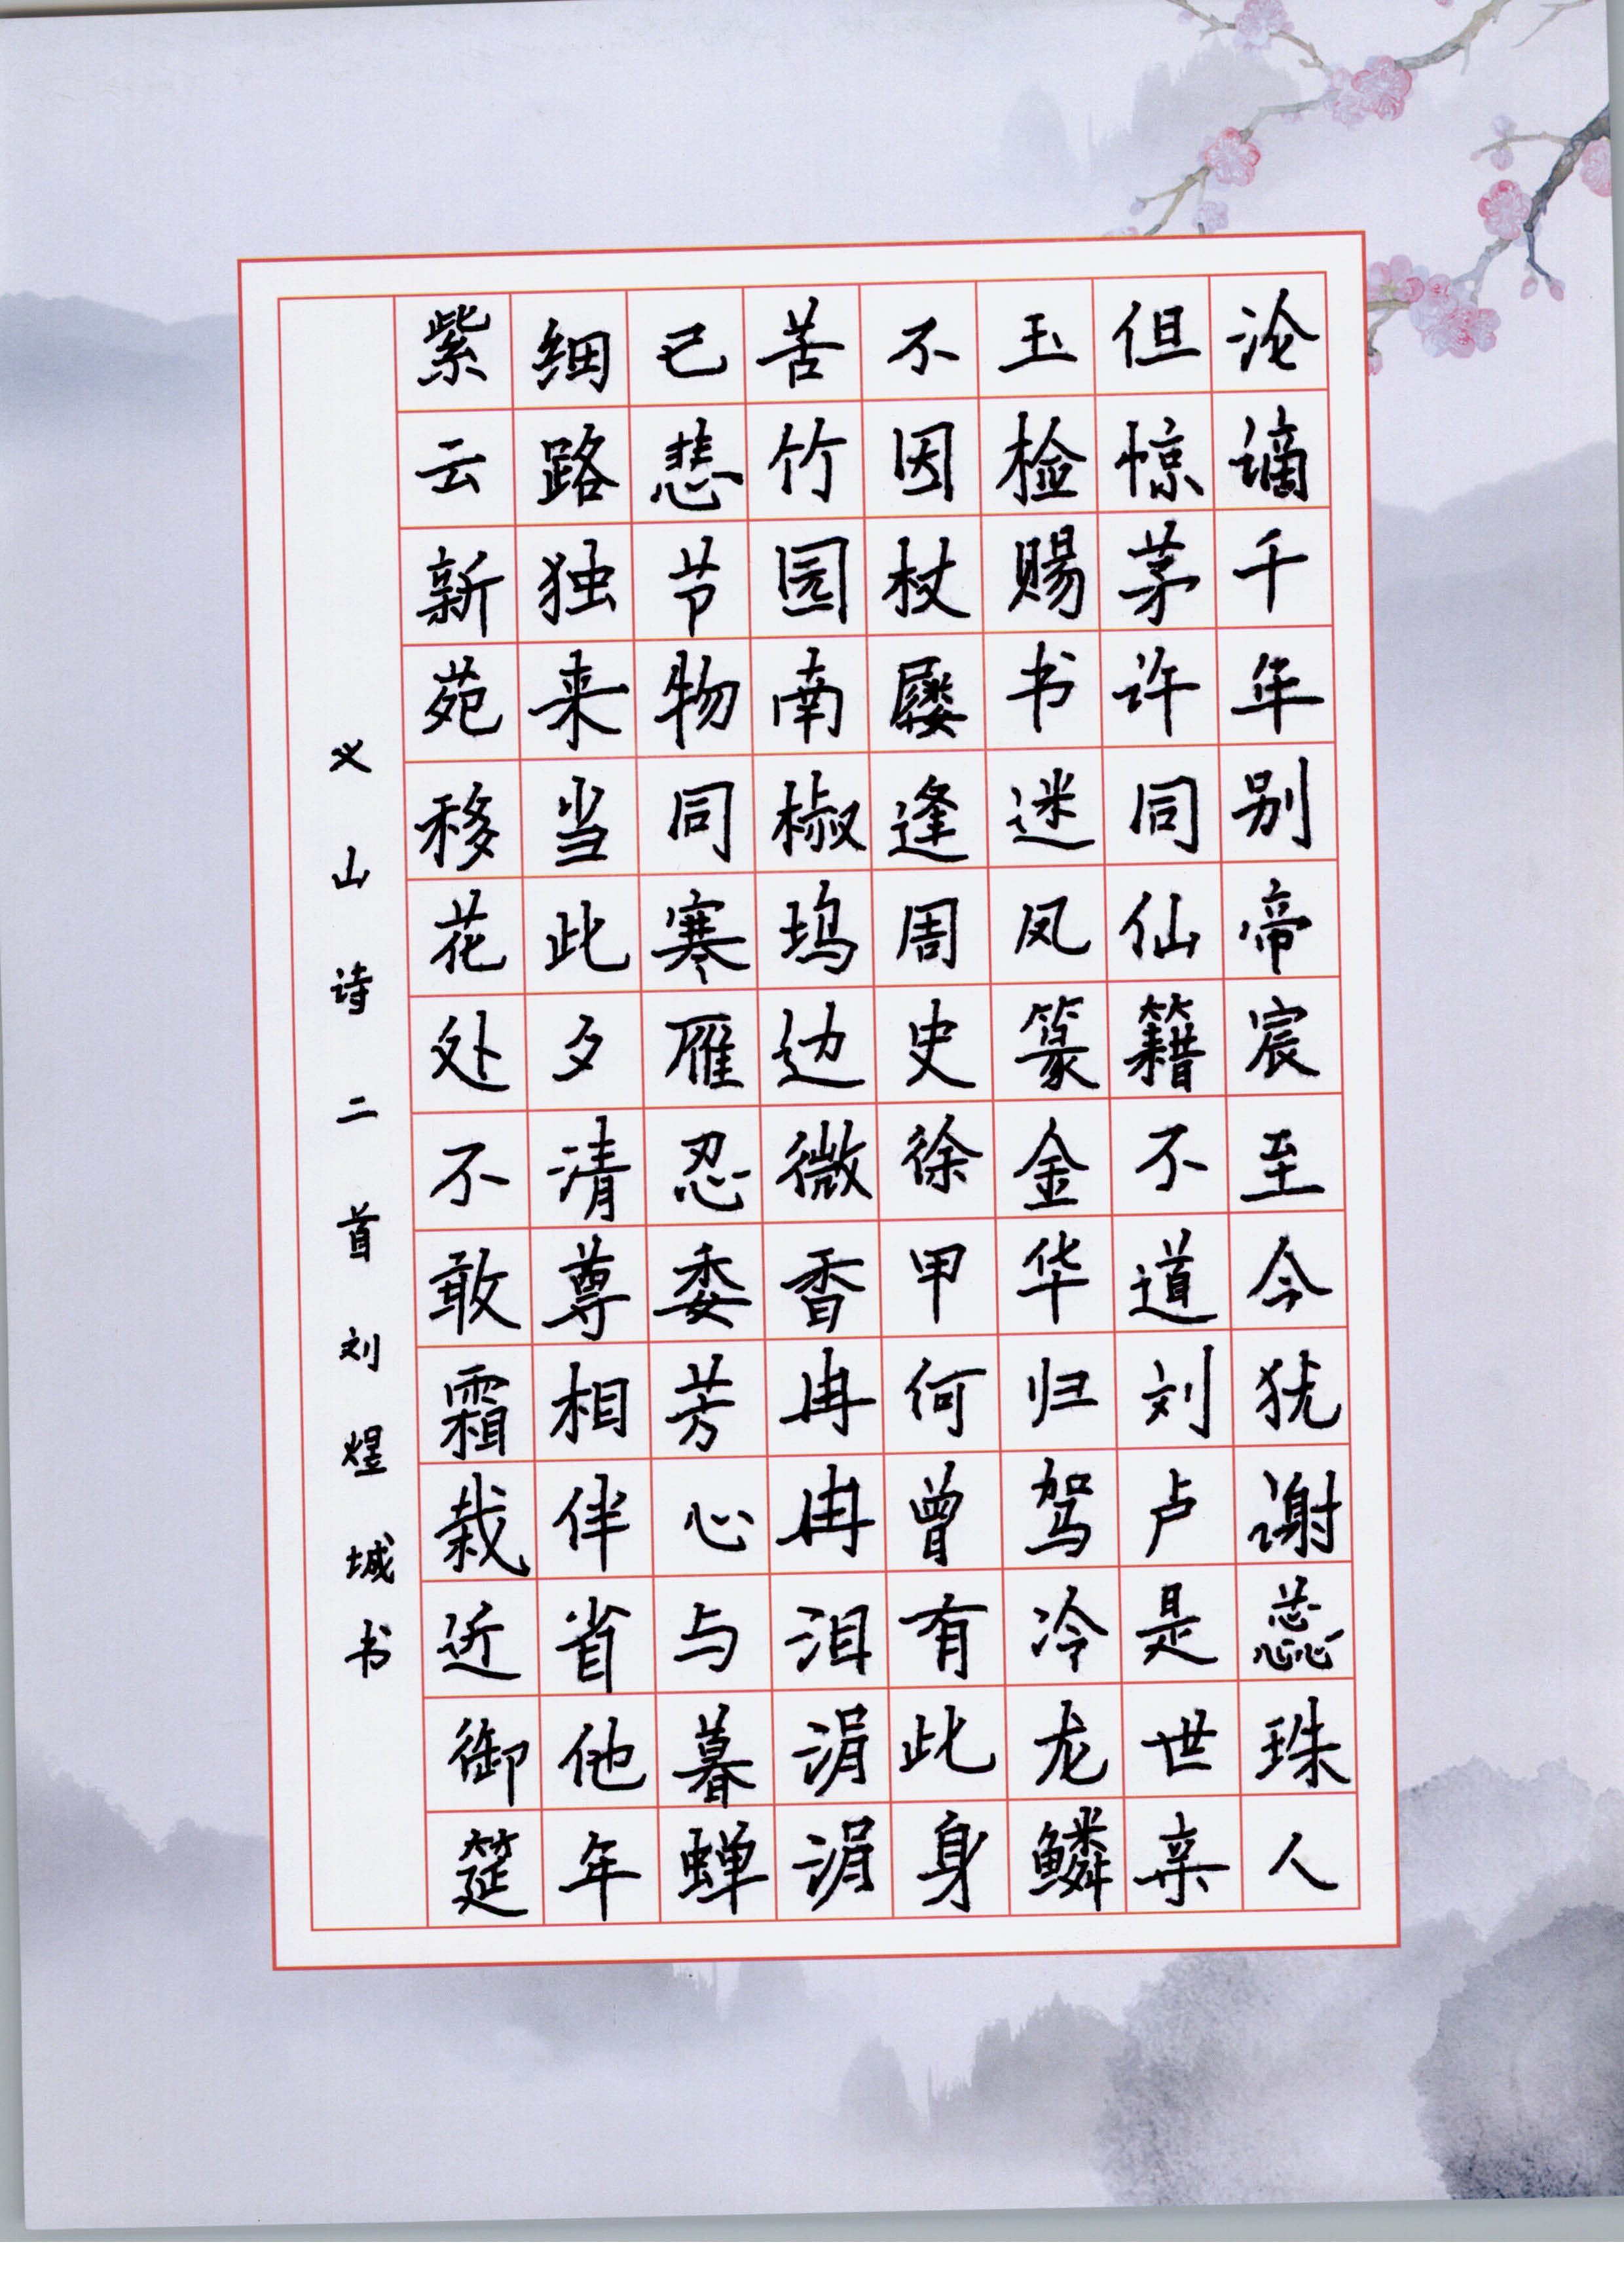 沦谪千年别帝宸至今犹谢蕊珠人
但惊茅许同仙籍不道刘卢是世亲
玉检赐书迷凤篆金华归驾冷龙鳞
不因杖屦逢周史徐甲何曾有此身
苦竹园南椒坞边微香冉冉泪涓涓
已悲节物同寒雁忍委芳心与暮蝉
细路独来当此夕清尊相伴省他年
紫云新苑移花处不敢霜栽近御筵
义山诗二首刘煜城书